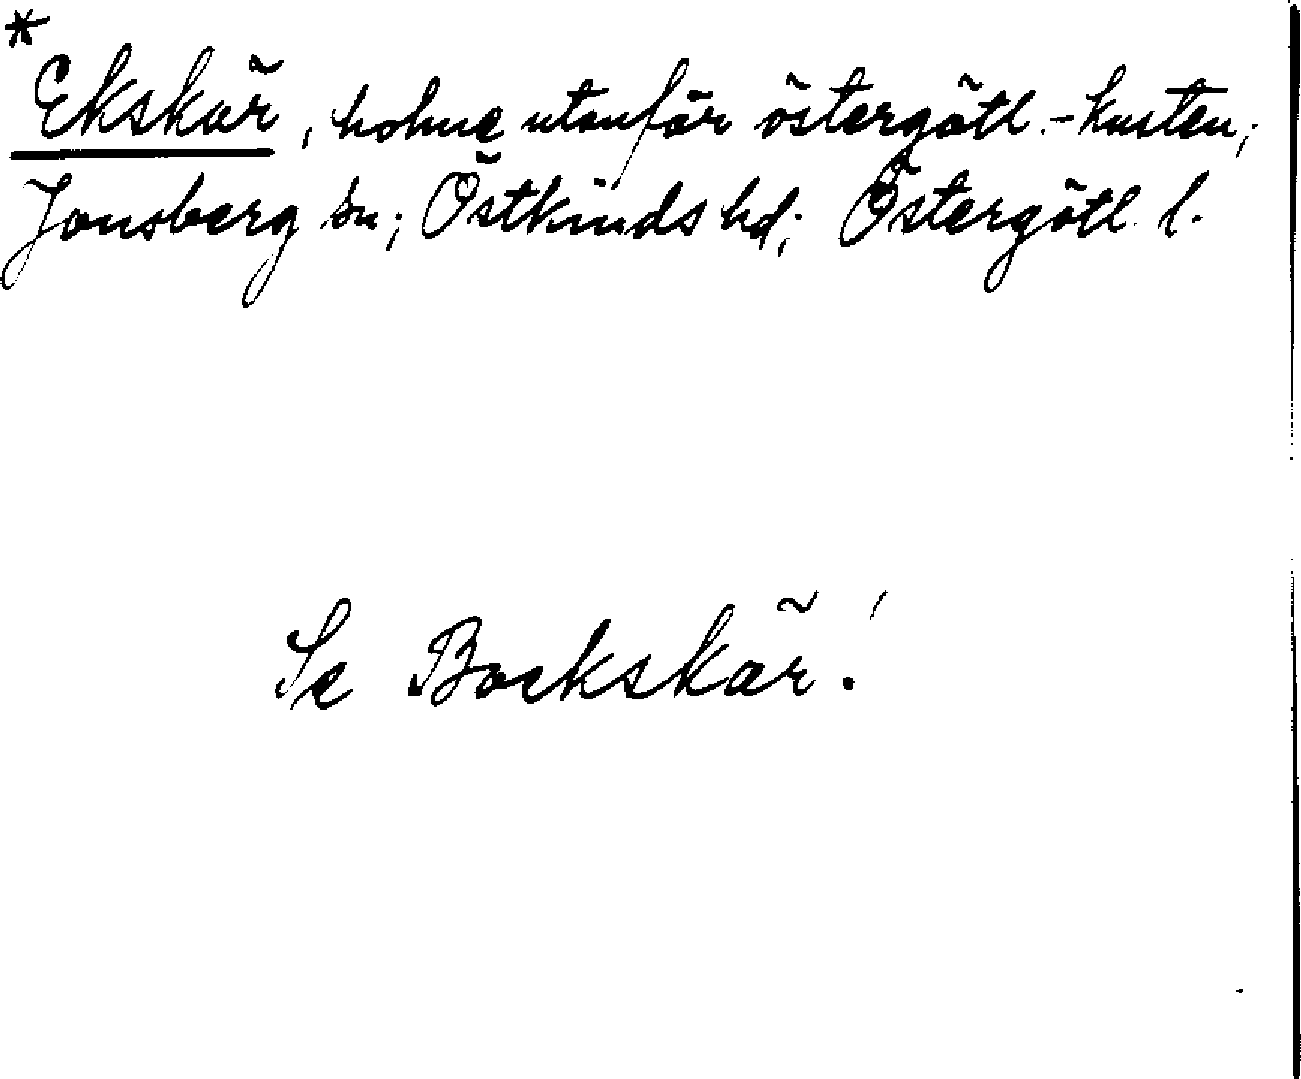 *
Ekskär, holme utanför östergötl.-kusten;
Jonsberg sn; Östkinds hd; Östergötl. l.
Se Bockskär!